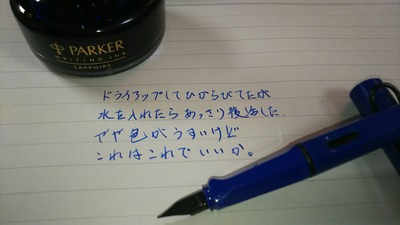 PARKER
WRITING INK
SAPPHIRE
ドライアップしてひからびてたが
水を入れたらあっさり復活した.
やや色がうすいけど
これはこれでいいか。